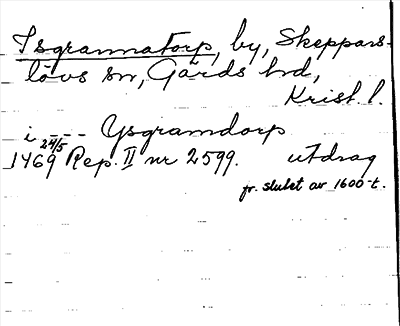 Isgrannatorp, by, Skeppars-
lövs sn, Gärds hd,
Krist. l.
i - - - Ysgramdorp
24/5
1469 Rep. II nr 2599. utdrag
fr. slutet av 1600-t.